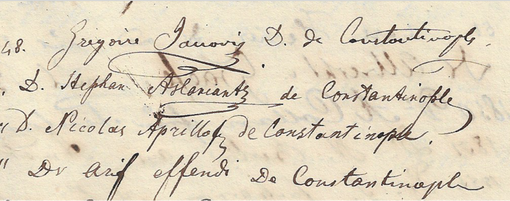 48. Gregoire Janovis D. de Constantinople.
" D. Stephan Aslaniantz de Constantinople
" D. Nicolas Aprillof de Constantinople.
" Dr Arif effendi De Constantinople